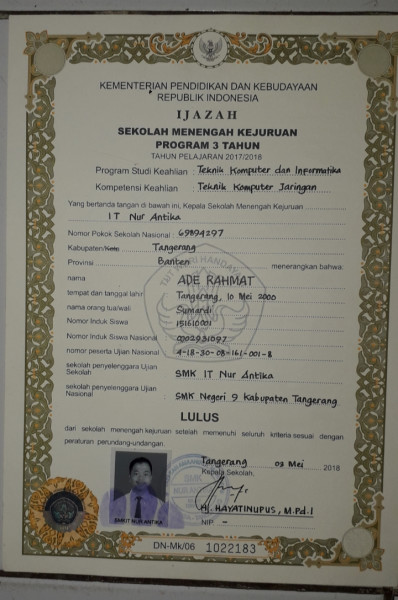 KEMENTERIAN PENDIDIKAN DAN KEBUDAYAAN
REPUBLIK INDONESIA
IJAZAH
SEKOLAH MENENGAH KEJURUAN
PROGRAM 3 TAHUN
TAHUN PELAJARAN 2017/2018
Program Studi Keahlian : Teknik Komputer dan Informatika
Kompetensi Keahlian : Teknik Komputer Jaringan
Yang bertanda tangan di bawah ini, Kepala Sekolah Menengah Kejuruan
IT Nur Antika
Nomor Pokok Sekolah Nasional : 69894297
Kabupaten/Kota : Tangerang
Provinsi : Banten menerangkan bahwa:
nama : ADE RAHMAT
tempat dan tanggal lahir : Tangerang, 10 Mei 2000
nama orang tua/wali : Sumardi
Nomor Induk Siswa : 151610001
Nomor Induk Siswa Nasional : 0002931097
nomor peserta Ujian Nasional : 4-18-30-08-161-001-8
sekolah penyelenggara Ujian Sekolah : SMK IT Nur Antika
sekolah penyelenggara Ujian Nasional : SMK Negeri 9 Kabupaten Tangerang
LULUS
dari sekolah menengah kejuruan setelah memenuhi seluruh kriteria sesuai dengan
peraturan perundang-undangan.
Tangerang 03 Mei 2018
Kepala Sekolah,
Hj. HAYATINUPUS, M.Pd.I
NIP. -
SMKIT NUR ANTIKA
DN-Mk/06 1022183